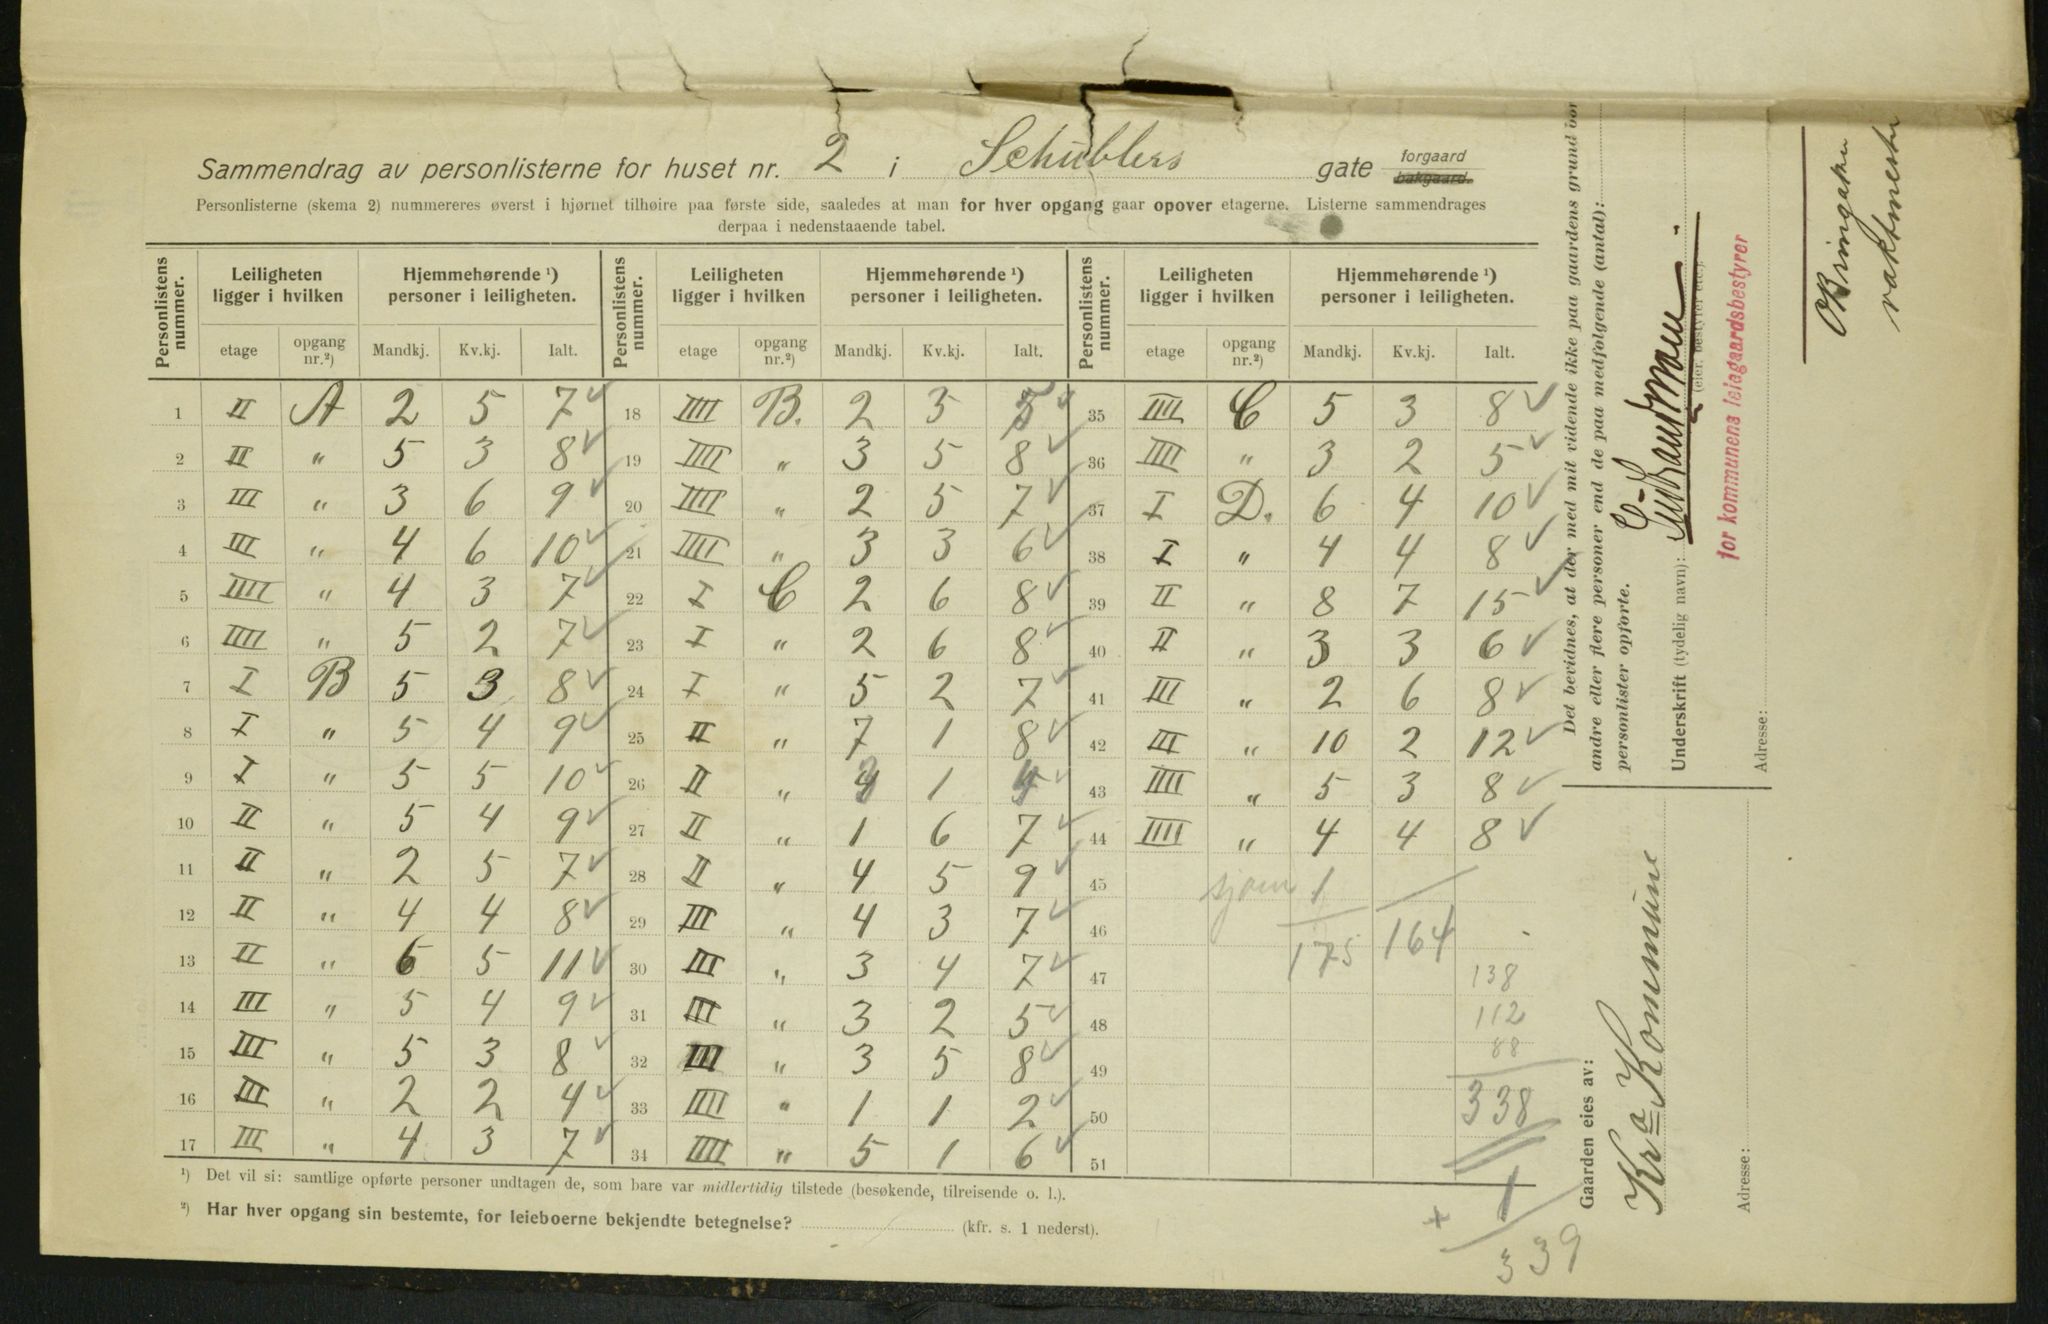 Sammendrag av personlisterne for huset nr. 2 i Schüblers gate forgaard bakgaard.
Personlisterne (skema 2) nummereres øverst i hjørnet tilhøire paa første side, saaledes at man for hver opgang gaar opover etagerne. Listerne sammendrages
derpaa i nedenstaaende tabel.
Personlistens nummer. Leiligheten ligger i hvilken Hjemmehørende ¹) personer i leiligheten. Personlistens nummer. Leiligheten ligger i hvilken Hjemmehørende ¹) personer i leiligheten. Personlistens nummer. Leiligheten ligger i hvilken Hjemmehørende ¹) personer i leiligheten.
etage opgang nr.²) Mandkj. Kv.kj. Ialt. etage opgang nr.²) Mandkj. Kv.kj. Ialt. etage opgang nr.²) Mandkj. Kv.kj. Ialt.
1 II A 2 5 7 ✓ 18 IIII B. 2 3 5 ✓ 35 IIII C 5 3 8 ✓
2 II " 5 3 8 ✓ 19 IIII " 3 5 8 ✓ 36 IIII " 3 2 5 ✓
3 III " 3 6 9 ✓ 20 IIII " 2 5 7 ✓ 37 I D. 6 4 10 ✓
4 III " 4 6 10 ✓ 21 IIII " 3 3 6 ✓ 38 I " 4 4 8 ✓
5 IIII " 4 3 7 ✓ 22 I C 2 6 8 ✓ 39 II " 8 7 15 ✓
6 IIII " 5 2 7 ✓ 23 I " 2 6 8 ✓ 40 II " 3 3 6 ✓
7 I B 5 3 8 ✓ 24 I " 5 2 7 ✓ 41 III " 2 6 8 ✓
8 I " 5 4 9 ✓ 25 II " 7 1 8 ✓ 42 III " 10 2 12 ✓
9 I " 5 5 10 ✓ 26 II " 3 1 4 ✓ 43 IIII " 5 3 8 ✓
10 II " 5 4 9 ✓ 27 II " 1 6 7 ✓ 44 IIII " 4 4 8 ✓
11 II " 2 5 7 ✓ 28 II " 4 5 9 ✓ 45 sjøm 1
12 II " 4 4 8 ✓ 29 III " 4 3 7 ✓ 46 175 164
13 II " 6 5 11 ✓ 30 III " 3 4 7 ✓ 47 138
14 III " 5 4 9 ✓ 31 III " 3 2 5 ✓ 48 112
15 III " 5 3 8 ✓ 32 III " 3 5 8 ✓ 49 88
16 III " 2 2 4 ✓ 33 IIII " 1 1 2 ✓ 50 338
17 III " 4 3 7 ✓ 34 IIII " 5 1 6 ✓ 51
+ 1
339
¹) Det vil si: samtlige opførte personer undtagen de, som bare var midlertidig tilstede (besøkende, tilreisende o. l.).
²) Har hver opgang sin bestemte, for leieboerne bekjendte betegnelse? (kfr. s. 1 nederst).
Det bevidnes, at der med mit vidende ikke paa gaardens grund bor
andre eller flere personer end de paa medfølgende (antal):
personlister opførte.
Underskrift (tydelig navn):
(eier, bestyrer etc.).
for kommunens leiegaardsbestyrer
Adresse:
vaktmester
Gaarden eies av:
Kra Kommune
Adresse: